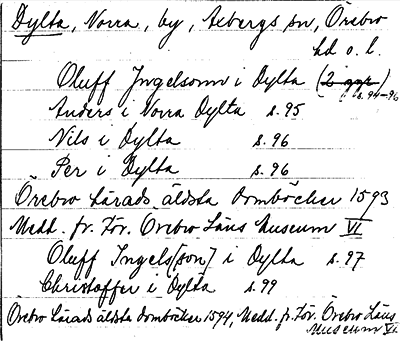 Dylta, Norra, by, Axbergs sn, Örebro
hd o. l.
Oluff Ingelsonn i Dylta (2 ggr)
s. 94-96
Anders i Norra Dylta s. 95
Nils i Dylta s. 96
Per i Dylta s. 96
Örebro härads äldsta domböcker 1593
Medd. fr. För. Örebro Läns Museum VI
Oluff Ingels[son] i Dylta s. 97
Christoffer i Dylta s. 99
Örebro härads äldsta domböcker 1594, Medd. fr. För. Örebro Läns
Museum VI